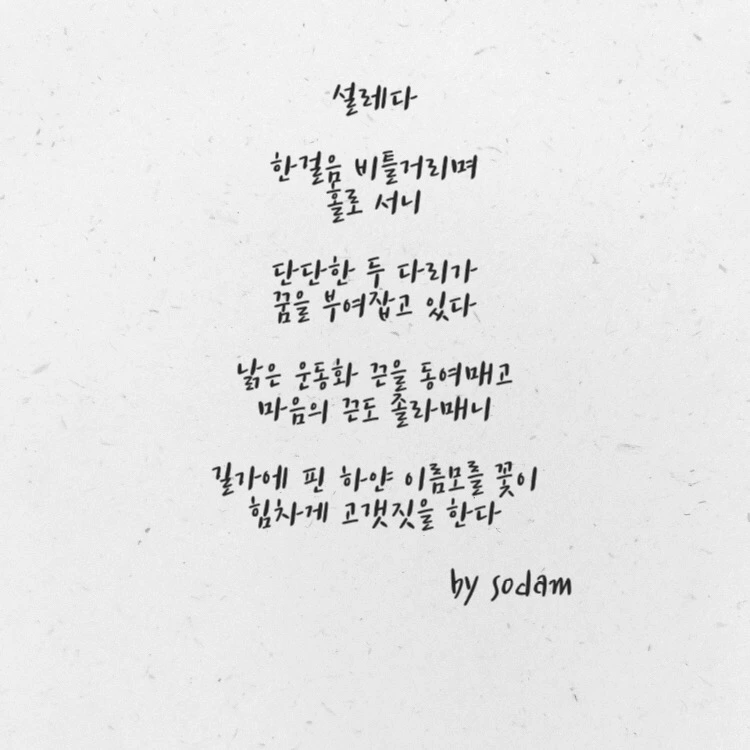 설레다
한걸음 비틀거리며
홀로 서니
단단한 두 다리가
꿈을 부여잡고 있다
낡은 운동화 끈을 동여매고
마음의 끈도 졸라매니
길가에 핀 하얀 이름모를 꽃이
힘차게 고갯짓을 한다
by sodam